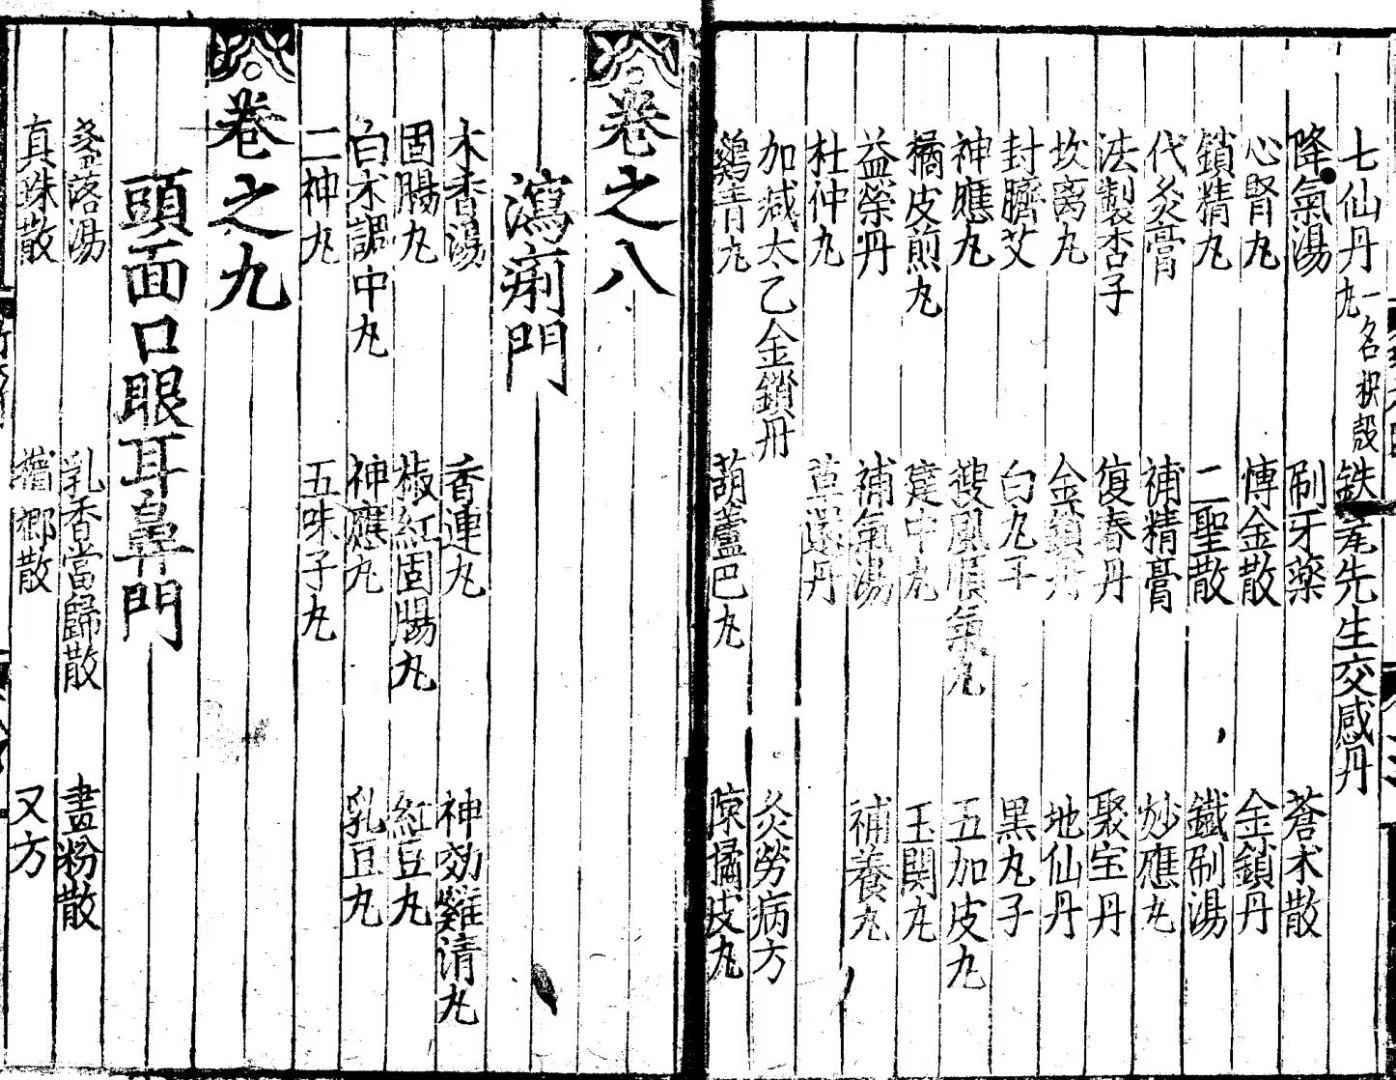 七仙丹丸一名枳殼 鉄瓮先生交感丹
降氣湯 刷牙藥 蒼朮散
心腎丸 慱金散 金鎖丹
鎖精丸 二聖散 鐵刷湯
代灸膏 補精膏 妙應丸
法製杏子 復春丹 聚宝丹
坎离丸 金鎖丹 地仙丹
封臍艾 白丸子 黒丸子
神應丸 搜風順氣丸 五加皮丸
橘皮煎丸 建中丸 玉関丸
益榮丹 補氣湯 補養丸
杜仲丸 草還丹
加减太乙金鎖丹 灸勞病方
鷄青丸 葫蘆巴丸 陳橘皮丸
卷之八
瀉痢門
木香湯 香連丸 神効雞清丸
固腸丸 椒紅固腸丸 紅豆丸
白术調中丸 神應丸 乳豆丸
二神丸 五味子丸
卷之九
頭面口眼耳鼻門
落湯 乳香當歸散 畫粉散
真珠散 檳榔散 又方